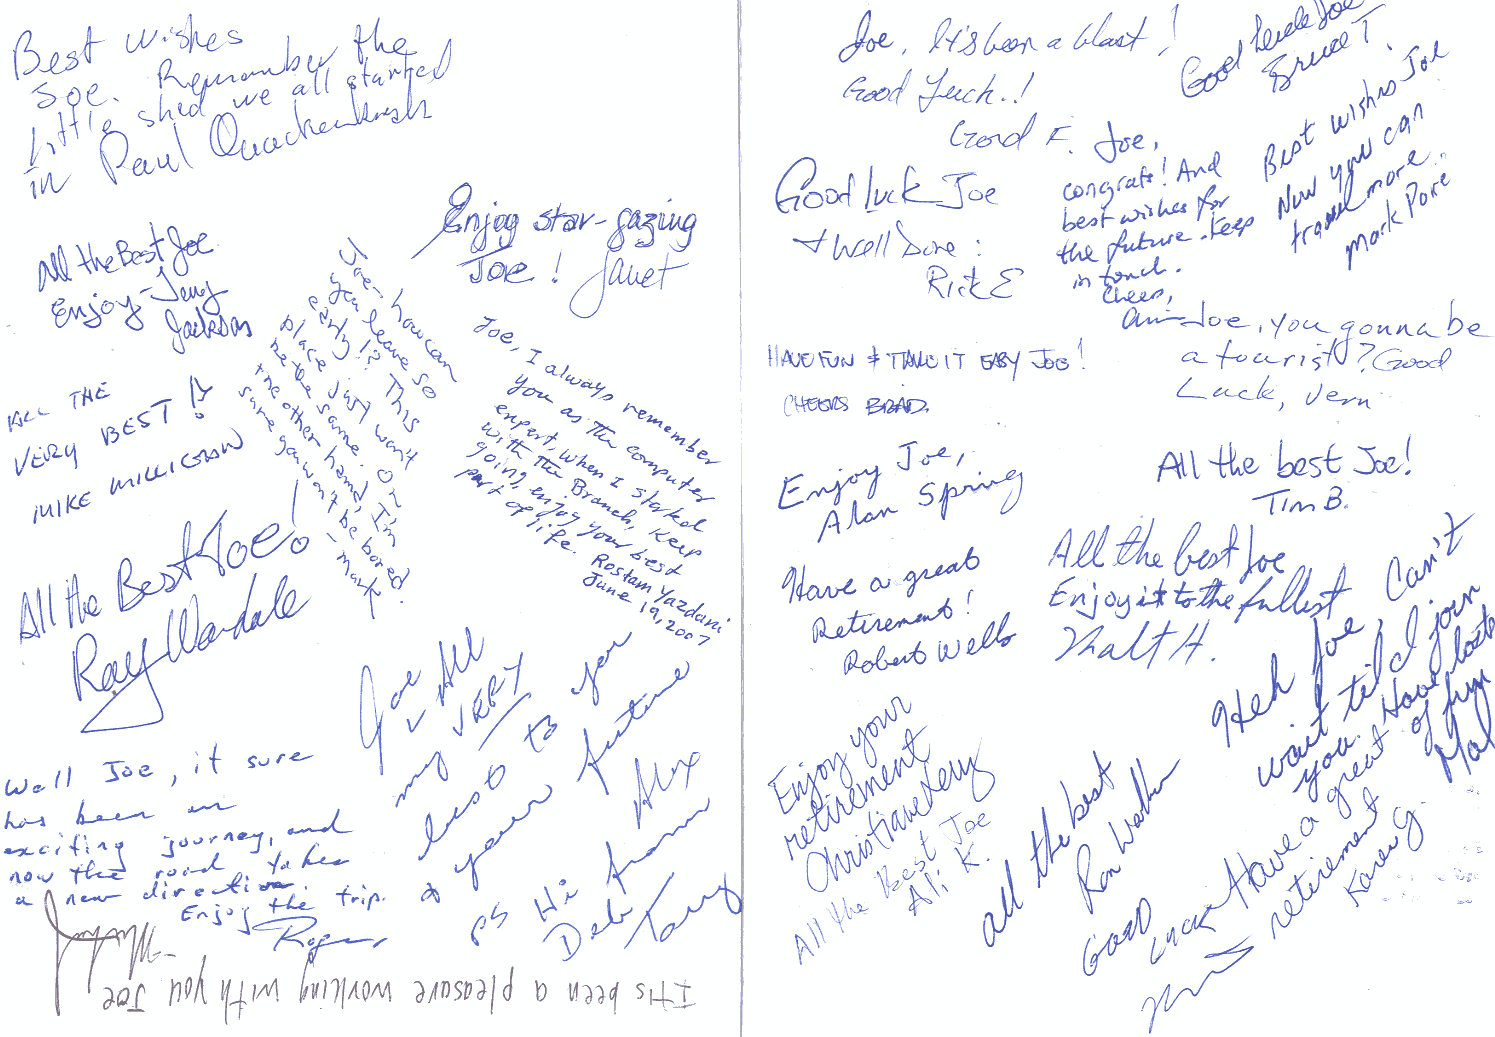 Best wishes
Joe. Remember the
little shed we all started
in Paul Quackenbush
All the Best Joe
Enjoy - Jerry
Jackson
Enjoy star-gazing
Joe! Janet
Joe - how can
you leave so
early!? This
place just won't
be the same. On
the other hand, I'm
sure you won't be bored.
- Mark
KILL THE
VERY BEST!
MIKE MILLIGAN
Joe, I always remember
you as the computer
expert, when I started
with the Branch, keep
going, enjoy your best
part of life. Rostam Yazdani
June 19, 2007
All the Best Joe!
Ray Wardale
Joe
All
my VERY
best to you
& your future
Alex
PS Hi from
Deb
Tary
Well Joe, it sure
has been an
exciting journey, and
now the road takes
a new direction
Enjoy the trip.
Roger
It's been a pleasure working with you Joe
Joe, It's been a blast!
Good Luck..!
Gord F.
Good Luck Joe
Bruce T.
Good Luck Joe
& Well Done!
Rick E
Joe,
congrats! And
best wishes for
the future. Keep
in touch.
Cheers,
Best wishes Joe
Now you can
travel more.
Mark Pore
HAVE FUN & TAKE IT EASY JOE!
CHEERS BRAD.
Joe, you gonna be
a tourist? Good
Luck, Vern
Enjoy Joe,
Alan Spring
All the best Joe!
Tim B.
Have a great
Retirement!
Robert Wells
All the best Joe
Enjoy it to the fullest
Walt H.
Heh Joe, Can't
wait til I join
you. Have lots
of fun
Mal
Enjoy your
retirement
Christiane Levy
All the Best Joe
Ali K.
all the best
Ron
Good
Luck
Have a great
retirement
Karen G.